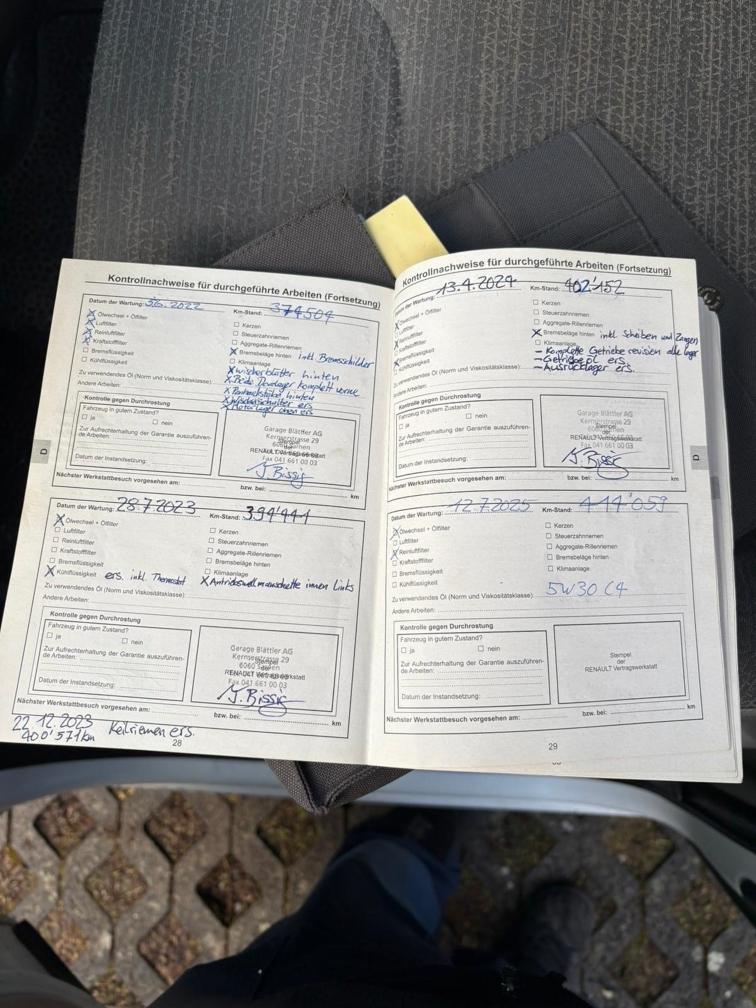 Kontrollnachweise für durchgeführte Arbeiten (Fortsetzung)
Datum der Wartung: 3.6.2022 Km-Stand: 374504
X Ölwechsel + Ölfilter
X Luftfilter
X Reinluftfilter
X Kraftstofffilter
Bremsflüssigkeit
Kühlflüssigkeit
Kerzen
Steuerzahnriemen
Aggregate-Rillenriemen
X Bremsbeläge hinten inkl. Bremsschilder
Klimaanlage
X Wischerblätter hinten
Zu verwendendes Öl (Norm und Viskositätsklasse):
komplett vorne
Andere Arbeiten:
hinten
ers.
X Motorlager oben ers.
Kontrolle gegen Durchrostung
Fahrzeug in gutem Zustand?
ja nein
Zur Aufrechterhaltung der Garantie auszuführende Arbeiten:
Datum der Instandsetzung:
Garage Blättler AG
Kernserstrasse 29
Stempel
RENAULT Vertragswerkstatt
Fax 041 661 00 03
J. Rissi
Nächster Werkstattbesuch vorgesehen am: bzw. bei: km
D
Datum der Wartung: 28.7.2023 Km-Stand: 394'441
X Ölwechsel + Ölfilter
Luftfilter
Reinluftfilter
Kraftstofffilter
Bremsflüssigkeit
X Kühlflüssigkeit ers. inkl Thermostat
Kerzen
Steuerzahnriemen
Aggregate-Rillenriemen
Bremsbeläge hinten
Klimaanlage
X Antriebswellmanschette innen Links
Zu verwendendes Öl (Norm und Viskositätsklasse):
Andere Arbeiten:
Kontrolle gegen Durchrostung
Fahrzeug in gutem Zustand?
ja nein
Zur Aufrechterhaltung der Garantie auszuführen-
de Arbeiten:
Datum der Instandsetzung:
Garage Blättler AG
Kernserstrasse 29
6060 Sarnen
RENAULT Vertragswerkstatt
Fax 041 661 00 03
J. Rissi
Nächster Werkstattbesuch vorgesehen am: bzw. bei: km
22.12.2023
400'571km Keilriemen ers.
28
Kontrollnachweise für durchgeführte Arbeiten (Fortsetzung)
Datum der Wartung: 13.4.2024 Km-Stand: 402'152
X Ölwechsel + Ölfilter
Luftfilter
Reinluftfilter
Kraftstofffilter
Bremsflüssigkeit
Kühlflüssigkeit
Kerzen
Steuerzahnriemen
Aggregate-Rillenriemen
X Bremsbeläge hinten inkl Scheiben und Zangen
Klimaanlage
- Komplette Getriebe revision alle lager
- Getriebeöl ers.
- Ausrücklager ers.
Zu verwendendes Öl (Norm und Viskositätsklasse):
Andere Arbeiten:
Kontrolle gegen Durchrostung
Fahrzeug in gutem Zustand?
ja nein
Zur Aufrechterhaltung der Garantie auszuführen-
de Arbeiten:
Datum der Instandsetzung:
Garage Blättler AG
Kernserstrasse 29
Stempel
RENAULT Vertragswerkstatt
Fax 041 661 00 03
J. Rissi
Nächster Werkstattbesuch vorgesehen am: bzw. bei: km
D
Datum der Wartung: 12.7.2025 Km-Stand: 414'059
X Ölwechsel + Ölfilter
Luftfilter
X Reinluftfilter
Kraftstofffilter
Bremsflüssigkeit
Kühlflüssigkeit
Kerzen
Steuerzahnriemen
Aggregate-Rillenriemen
Bremsbeläge hinten
Klimaanlage
Zu verwendendes Öl (Norm und Viskositätsklasse): 5W30 C4
Andere Arbeiten:
Kontrolle gegen Durchrostung
Fahrzeug in gutem Zustand?
ja nein
Zur Aufrechterhaltung der Garantie auszuführen-
de Arbeiten:
Datum der Instandsetzung:
Stempel
der
RENAULT Vertragswerkstatt
Nächster Werkstattbesuch vorgesehen am: bzw. bei: km
29